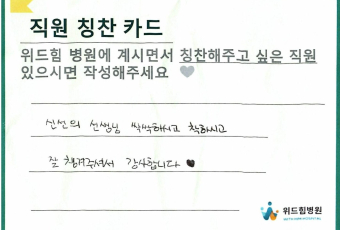 직원 칭찬 카드
위드힘 병원에 계시면서 칭찬해주고 싶은 직원
있으시면 작성해주세요
신선의 선생님 싹싹하시고 착하시고
잘 챙겨주셔서 감사합니다 ♥
위드힘병원